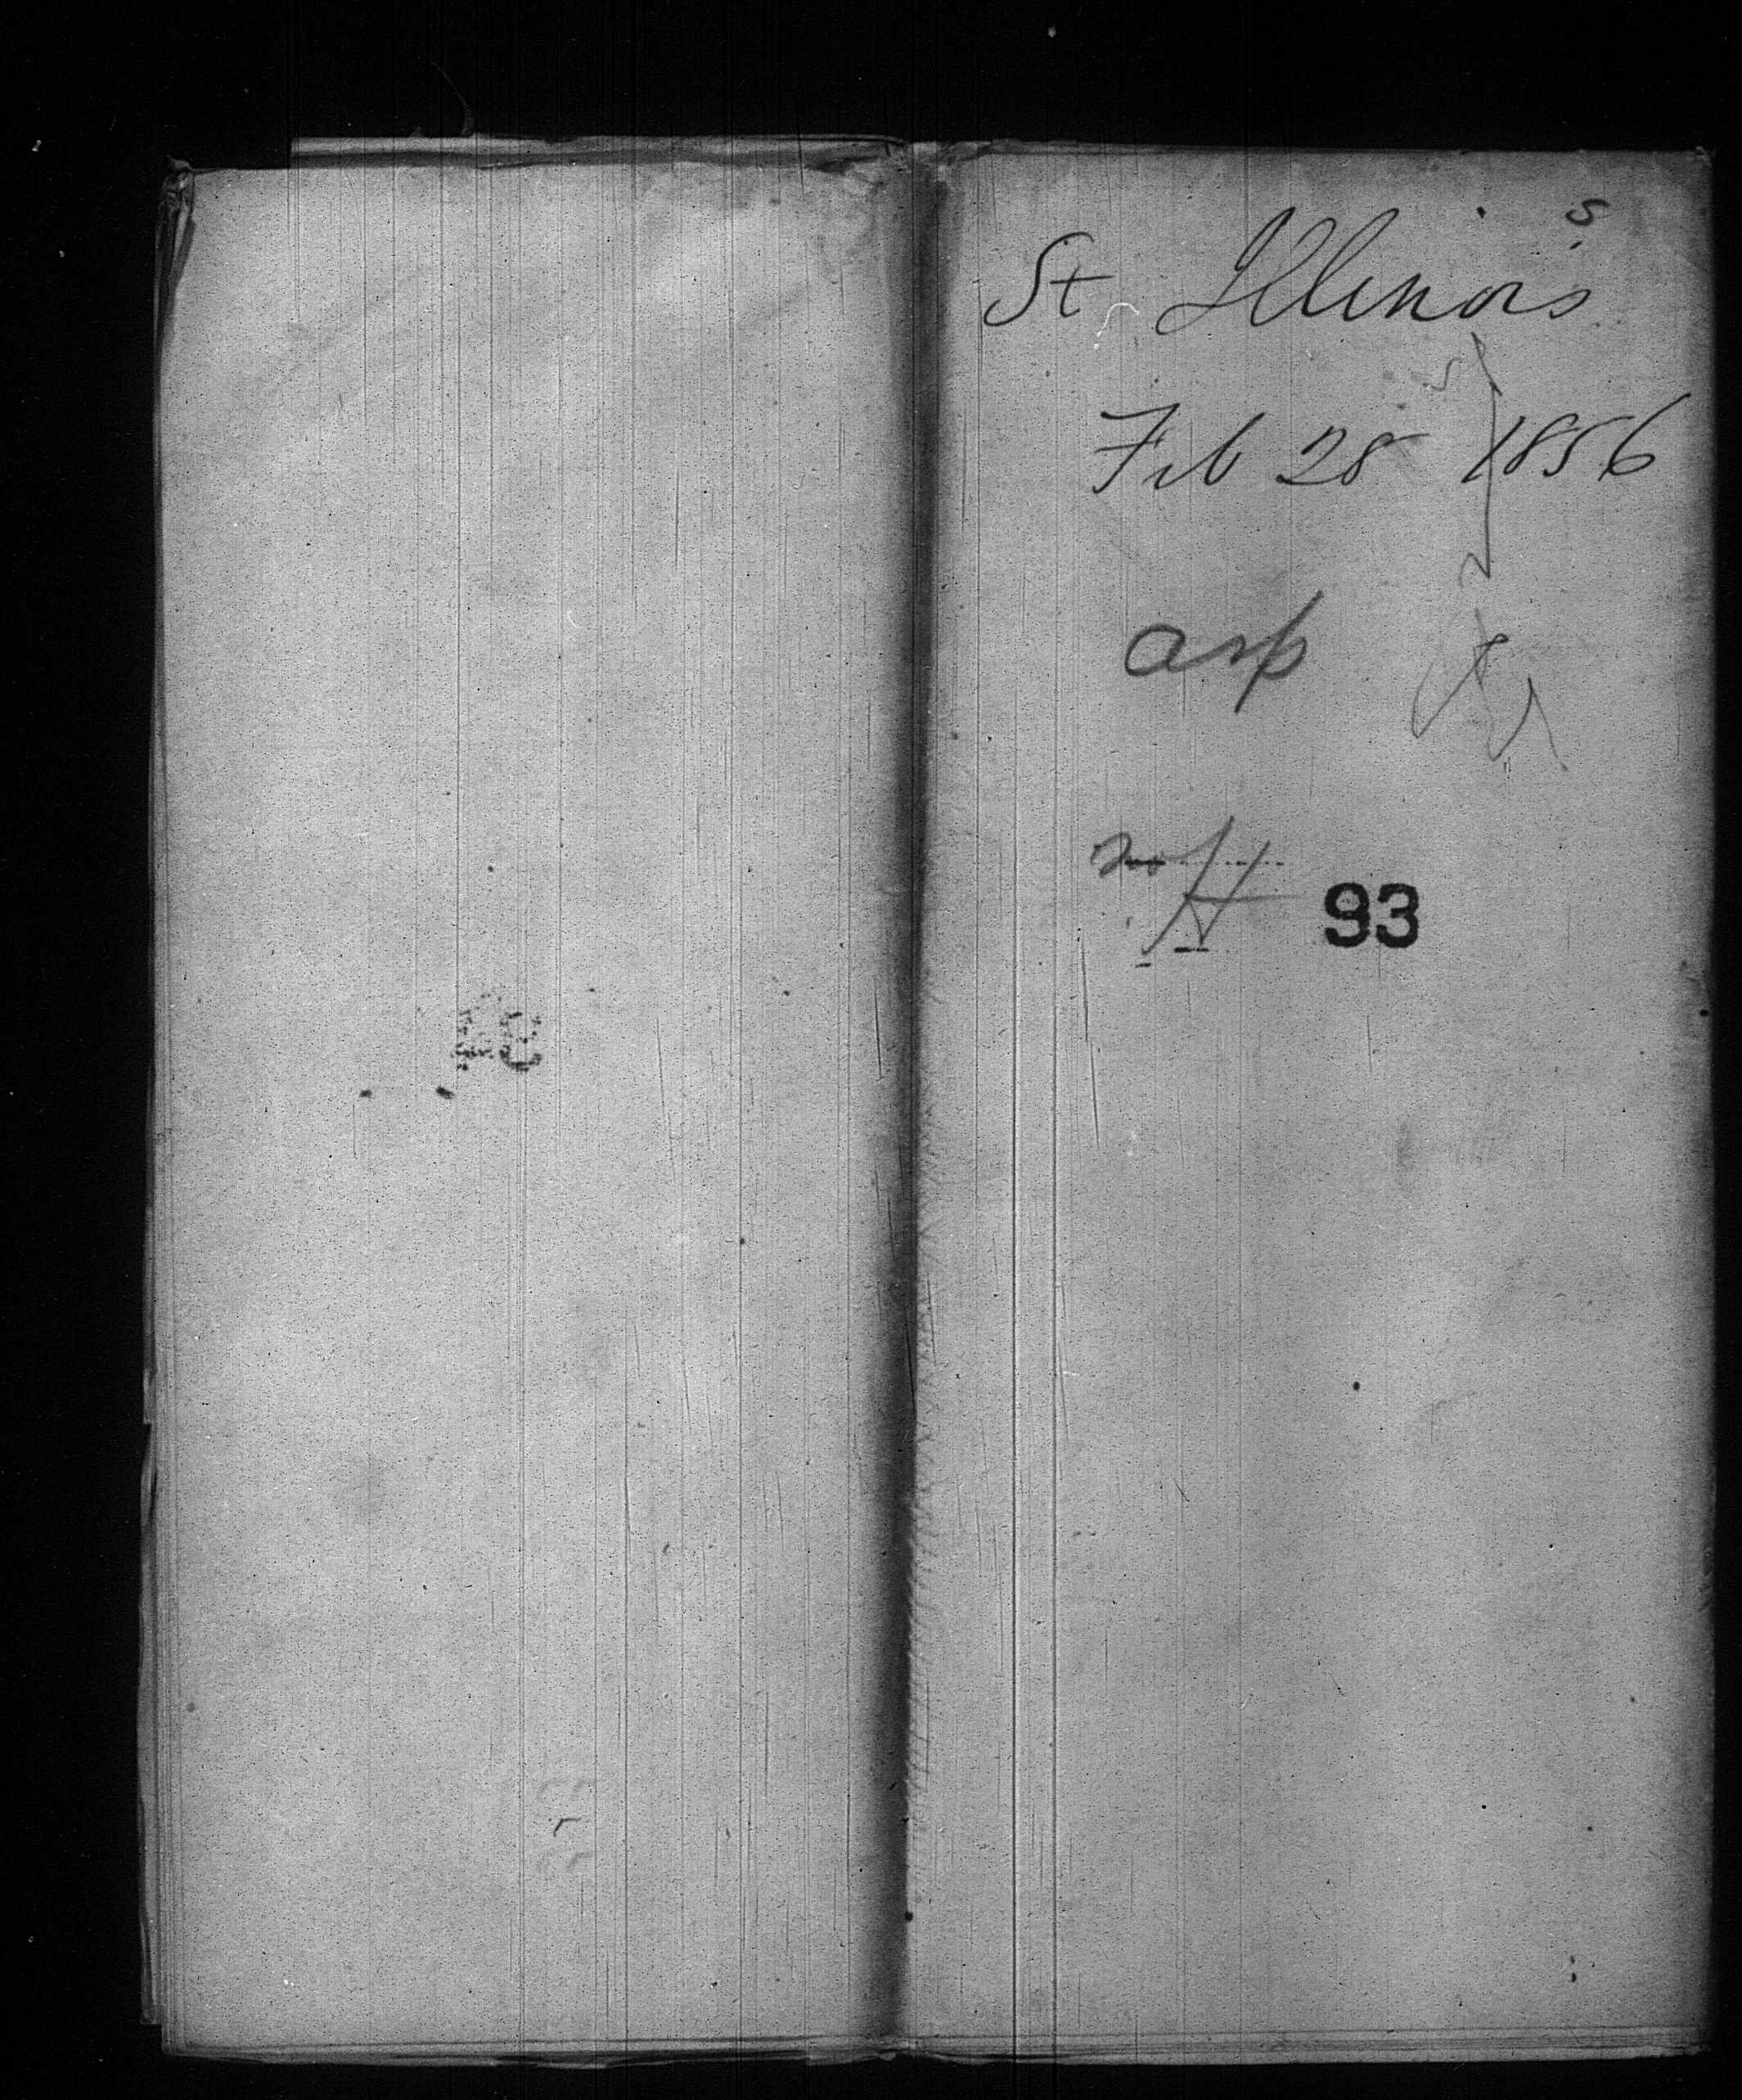 s
St Illinois
Feb 28 1856
asp
93